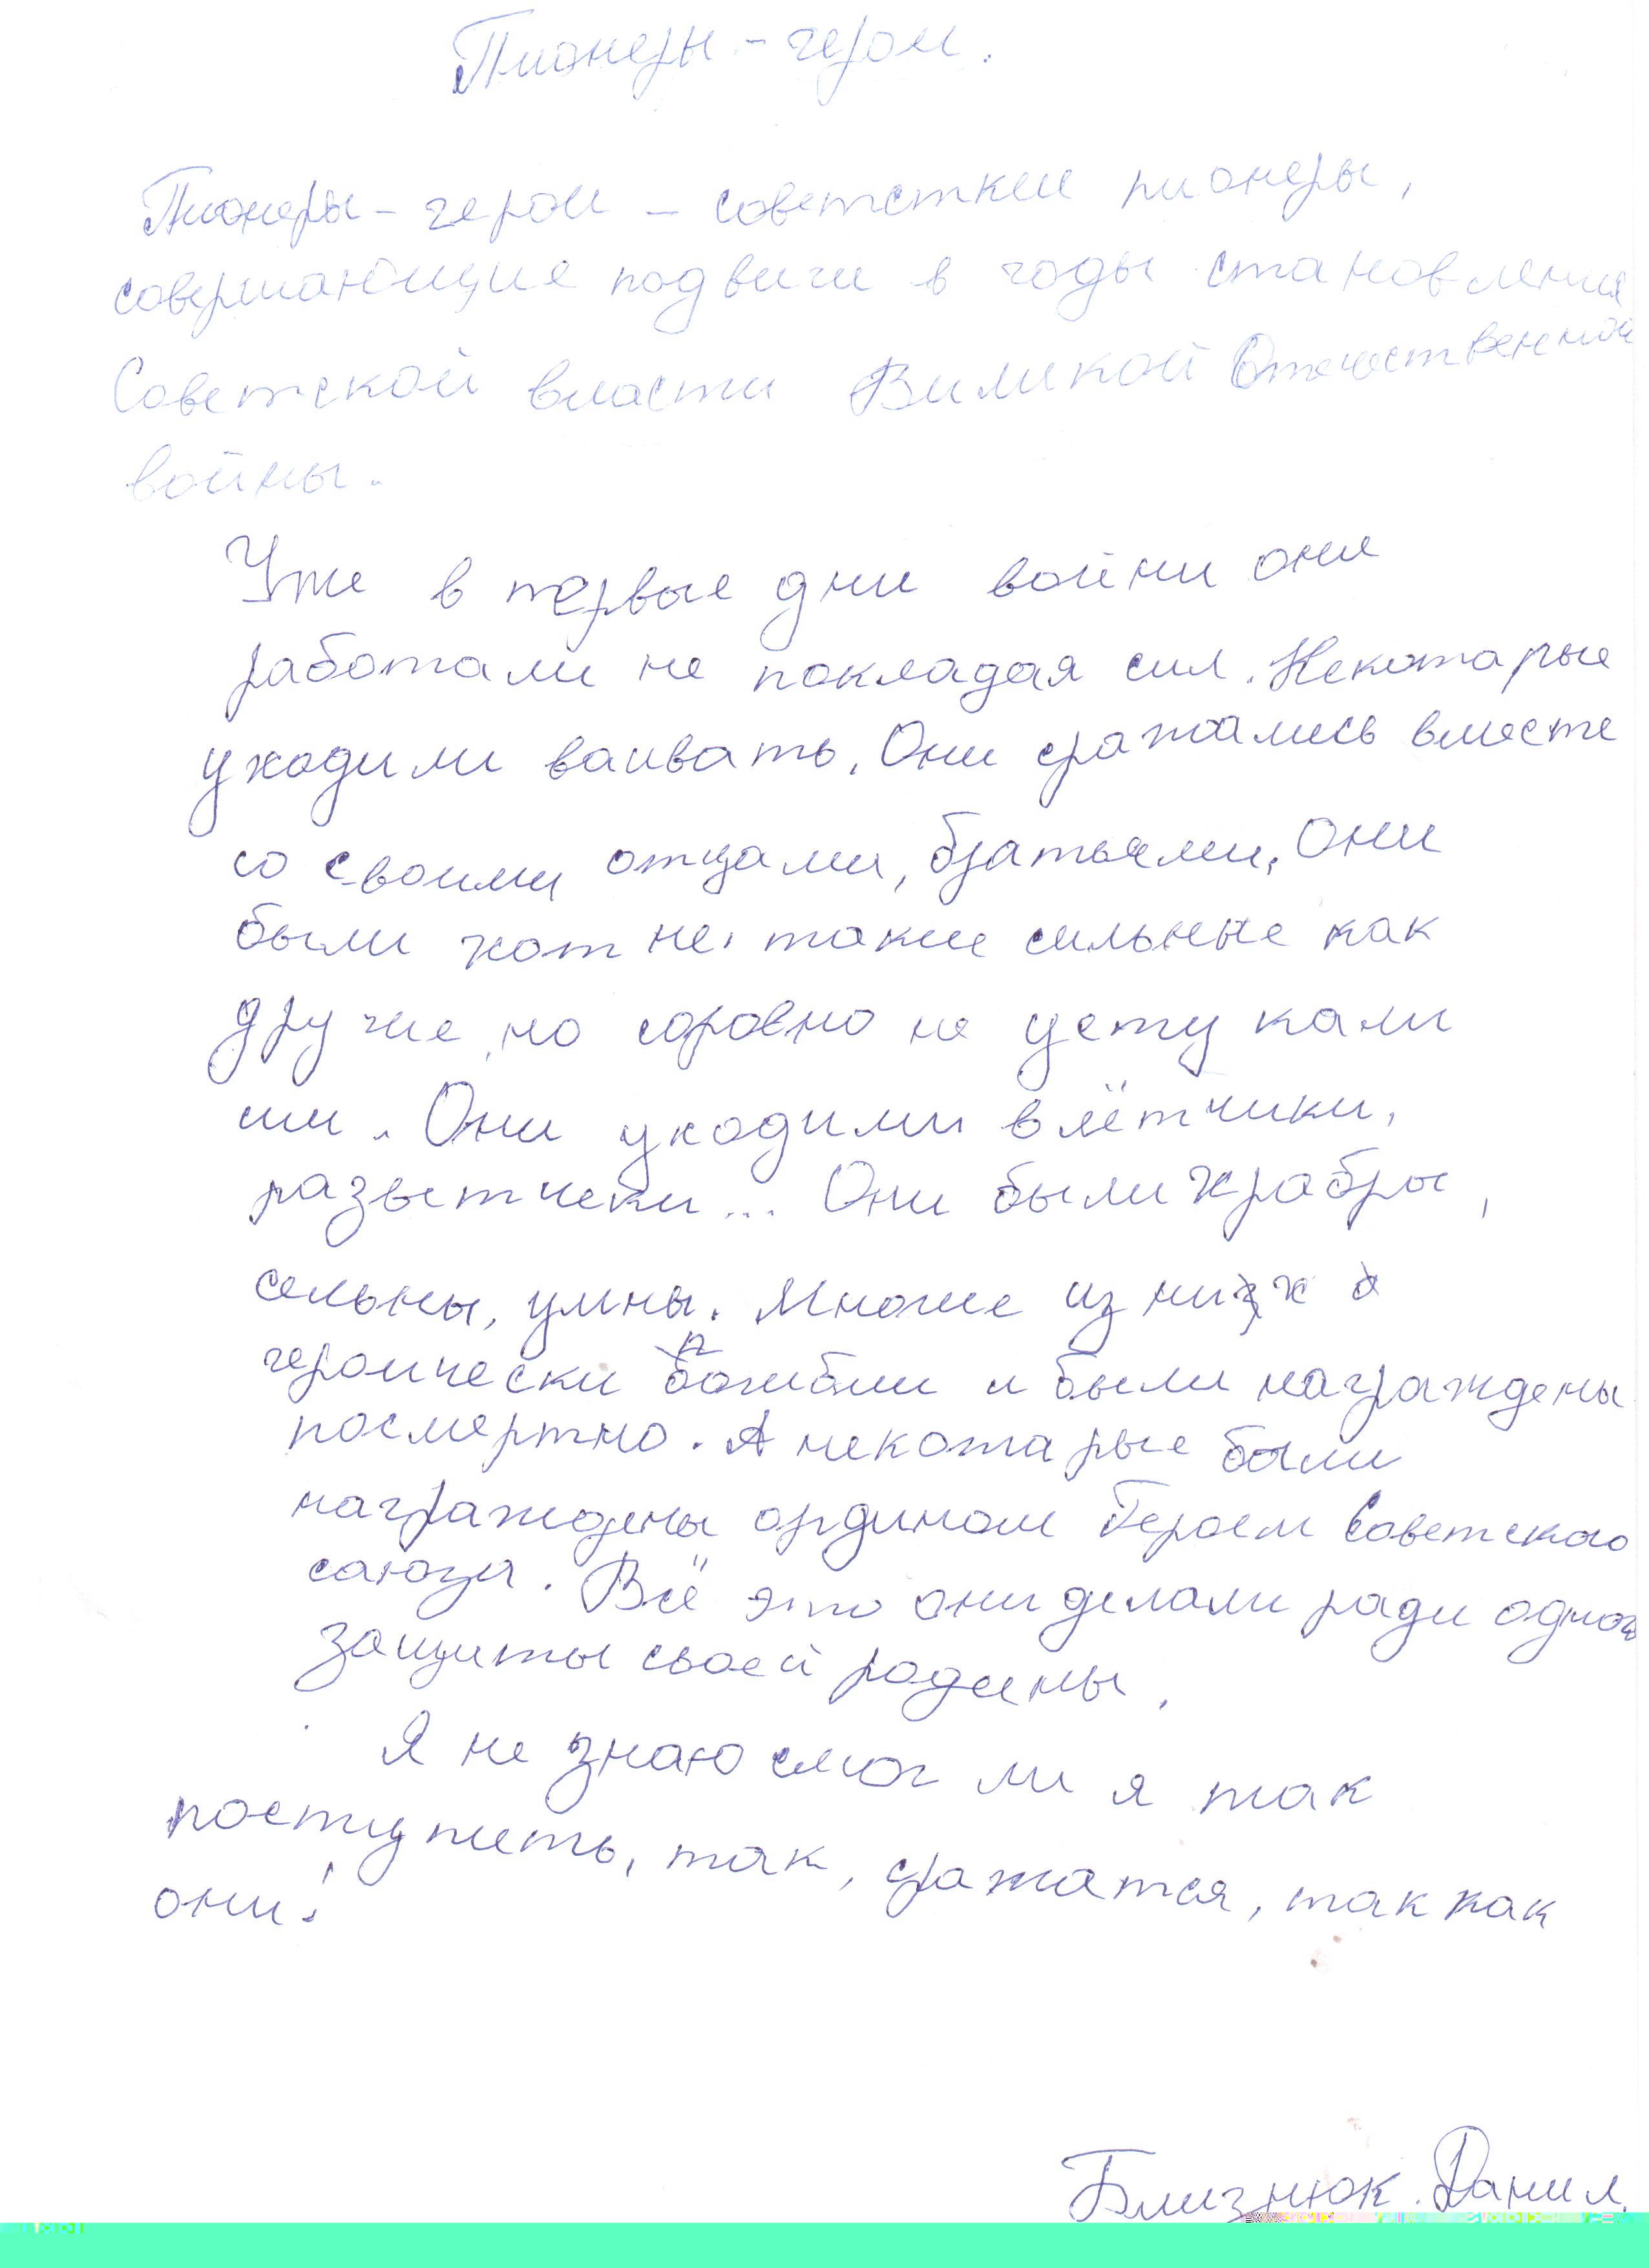 Пионеры - герои.
Пионеры - герои - советсткии пионеры,
совершающие подвиги в годы становления
Советской власти Виликой Отечественной
войны.
Уже в первые дни войни они
работали не покладая сил. Некотарые
уходили ваивать. Они сражались вместе
со своими отцами, братьями. Они
были хот не такие сильные как
другие, но соровно не уступкали
им. Они уходили в лётчики,
разытчеки... Они были храбры,
сельны, умны. Многие из них
героически погибли и были награждены
посмертно. А некотарые были
награждены ординоми Героем Советского
саюза. Всё это они делали ради одной
защиты своей родины.
Я не знаю смог ли я так
поступить, так, сражатся, так как
они!
Близнюк. Данил.